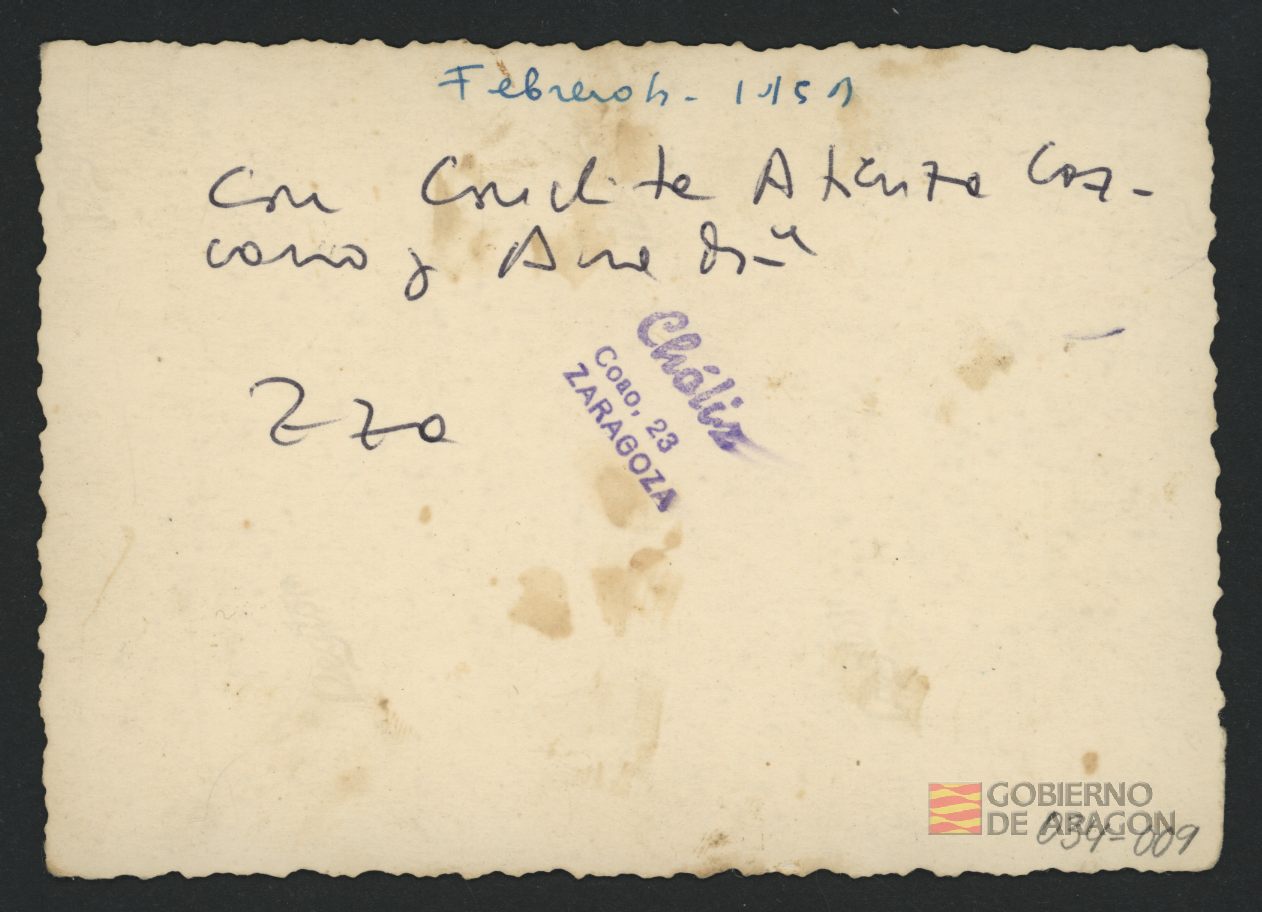 Febrero 1951
Con Conchita Atienza Coz-
cano y Ana
Zza
Chóliz
Coso, 23
ZARAGOZA
GOBIERNO
DE ARAGON
034-009